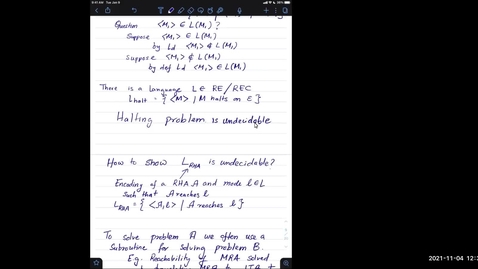 9:41 AM Tue Jan 5
Question <M₁> ∈ L(M₁) ?
Suppose <M₁> ∈ L(M₁)
by Ld <M₁> ∉ L(M₁)
suppose <M₁> ∉ L(M₁)
by def Ld <M₁> ∈ L(M₁)
There is a language L ∈ RE/REC
Lhalt = { <M> | M halts on ε}
Halting problem is undecidable
How to show L_RHA is undecidable?
Encoding of a RHA A and mode l∈L
such that A reaches l
L_RHA = { <A,l> | A reaches l}
To solve problem A we often use a
Subroutine for solving problem B.
Eg. Reachability of MRA solved
2021-11-04